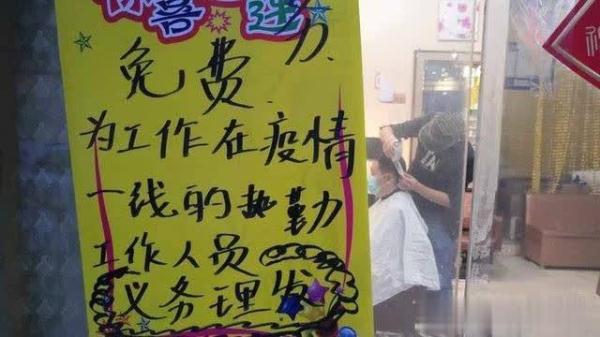 惊喜
免费
为工作在疫情
一线的执勤
工作人员
义务理发